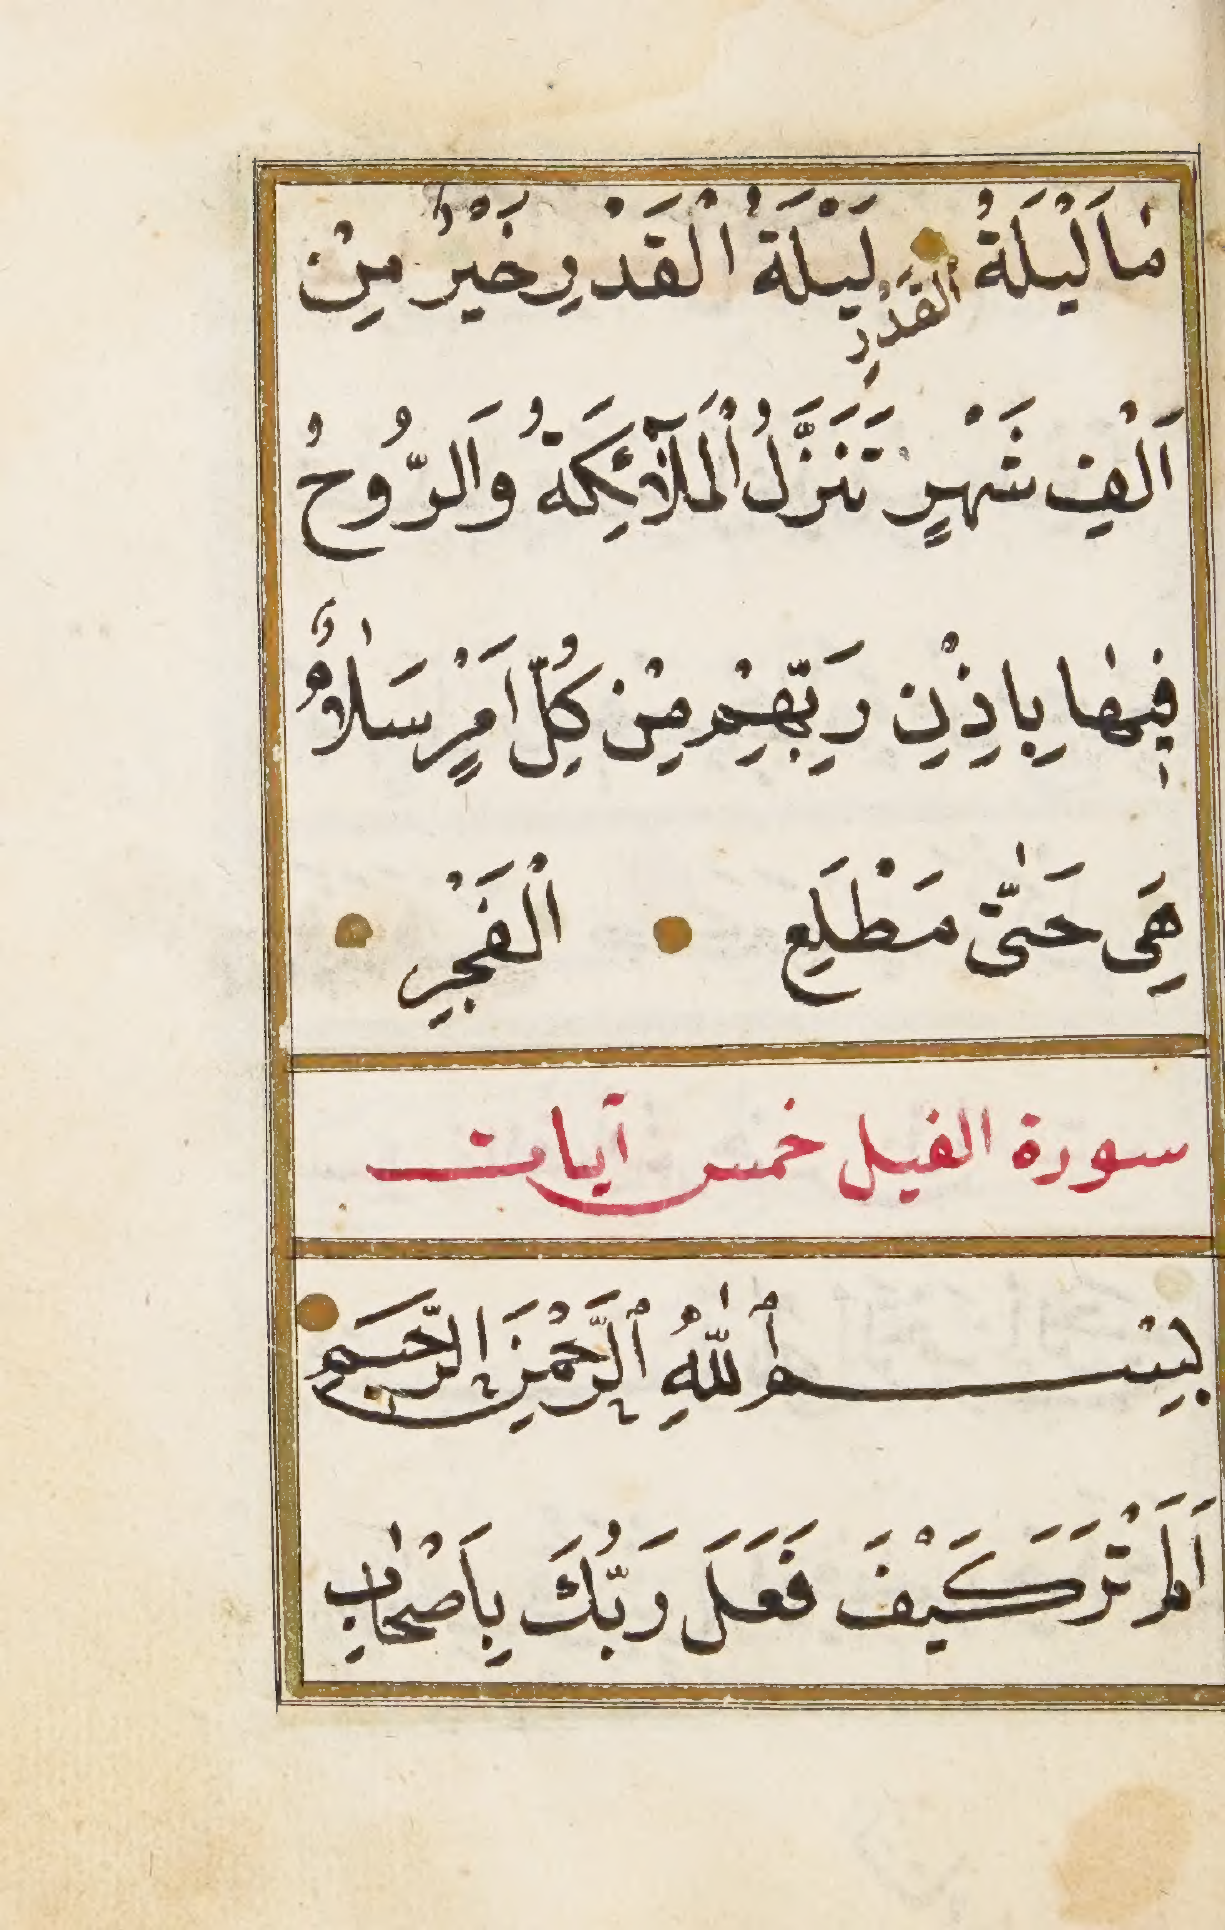 مَا لَيْلَةُ الْقَدْرِ لَيْلَةُ الْقَدْرِ خَيْرٌ مِنْ
اَلْفِ شَهْرٍ تَنَزَّلُ الْمَلٰٓائِكَةُ وَالرُّوحُ
فِيهٰا بِاِذْنِ رَبِّهِمْ مِنْ كُلِّ اَمْرٍ سَلٰامٌ
هِيَ حَتّٰى مَطْلَعِ الْفَجْرِ
سورة الفيل خمس آيات
بِسْمِ اللّٰهِ الرَّحْمٰنِ الرَّحِيمِ
اَلَمْ تَرَ كَيْفَ فَعَلَ رَبُّكَ بِاَصْحٰابِ